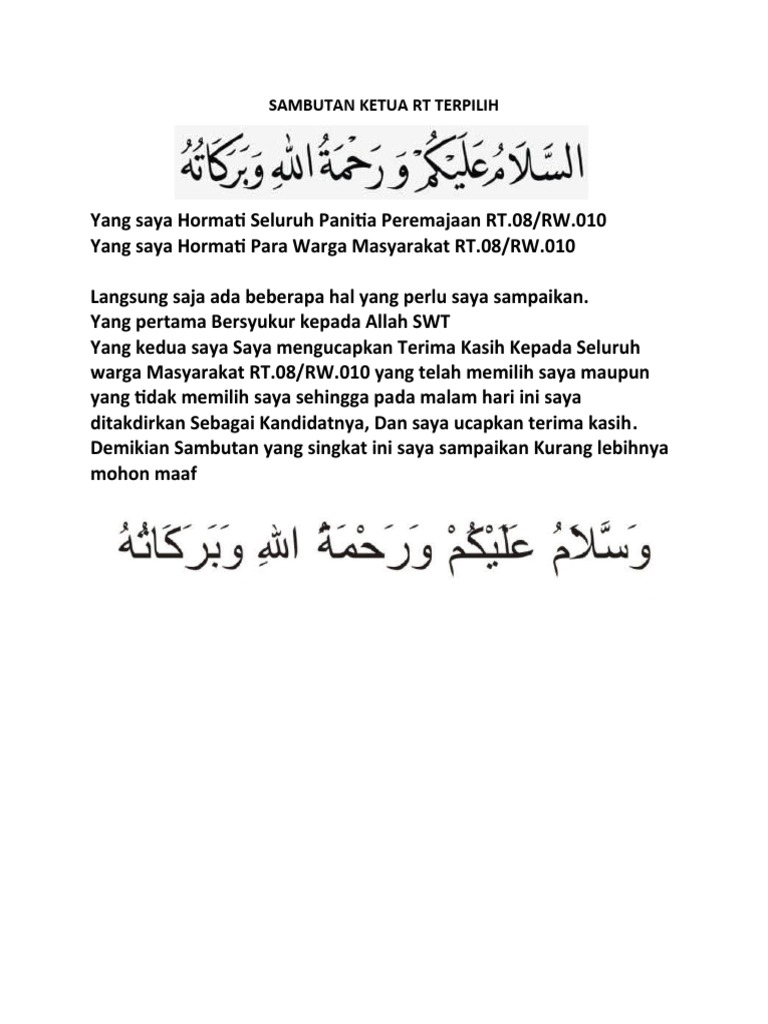 SAMBUTAN KETUA RT TERPILIH
السَّلَامُ عَلَيْكُمْ وَ رَحْمَةُ اللهِ وَبَرَكَاتُهُ
Yang saya Hormati Seluruh Panitia Peremajaan RT.08/RW.010
Yang saya Hormati Para Warga Masyarakat RT.08/RW.010
Langsung saja ada beberapa hal yang perlu saya sampaikan.
Yang pertama Bersyukur kepada Allah SWT
Yang kedua saya Saya mengucapkan Terima Kasih Kepada Seluruh
warga Masyarakat RT.08/RW.010 yang telah memilih saya maupun
yang tidak memilih saya sehingga pada malam hari ini saya
ditakdirkan Sebagai Kandidatnya, Dan saya ucapkan terima kasih.
Demikian Sambutan yang singkat ini saya sampaikan Kurang lebihnya
mohon maaf
وَسَّلاَمُ عَلَيْكُمْ وَرَحْمَةُ اللهِ وَبَرَكَاتُهُ